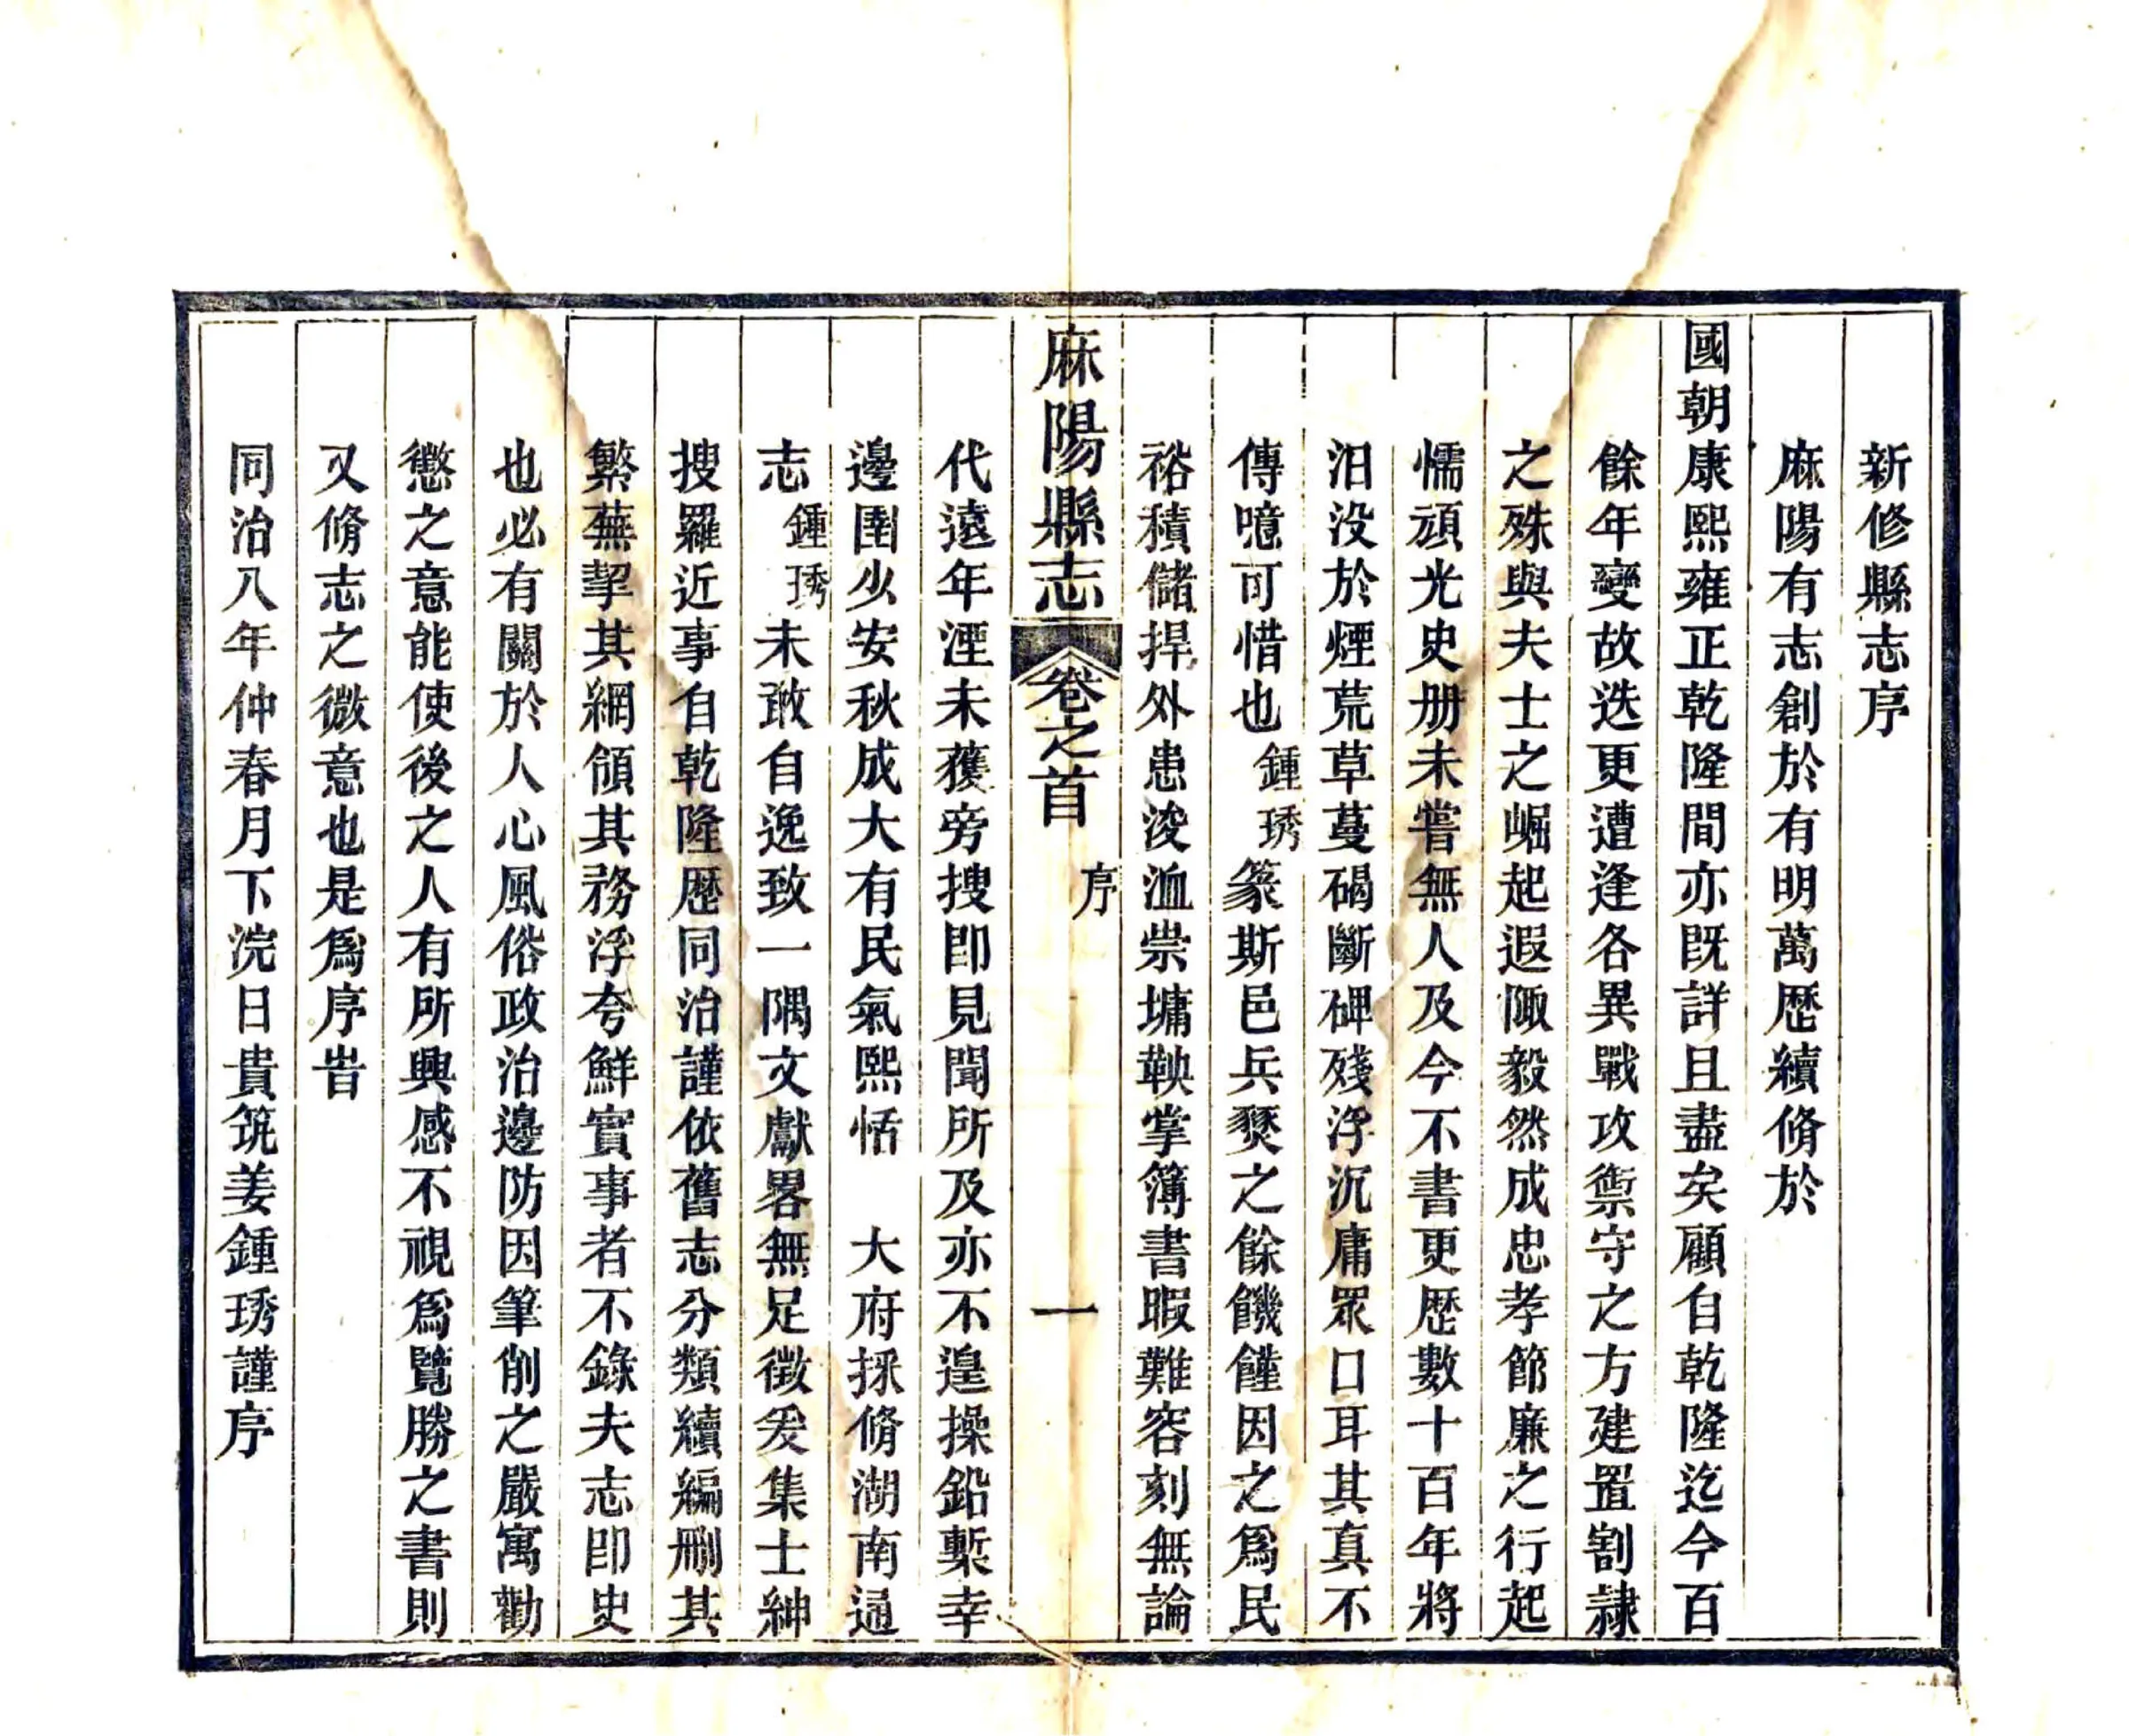 新修縣志序
麻陽有志創於有明萬歷續脩於
國朝康熙雍正乾隆間亦既詳且盡矣顧自乾隆迄今百
餘年變故迭更遭逢各異戰攻禦守之方建置割隷
之殊與夫士之崛起遐陬毅然成忠孝節廉之行起
懦頑光史册未嘗無人及今不書更歷數十百年將
汨没於煙荒草蔓碣斷碑殘浮沉庸眾口耳其真不
傳噫可惜也鍾琇篆斯邑兵燹之餘饑饉因之爲民
裕積儲捍外患浚洫崇墉鞅掌簿書暇難容刻無論
麻陽縣志 卷之首 序 一
代遠年湮未獲旁搜即見聞所及亦不遑操鉛槧幸
邊圉少安秋成大有民氣熙恬 大府採脩湖南通
志鍾琇未敢自逸致一隅文獻畧無足徵爰集士紳
搜羅近事自乾隆歷同治謹依舊志分類續編刪其
繁蕪挈其綱領其務浮夸鮮實事者不錄夫志即史
也必有關於人心風俗政治邊防因筆削之嚴寓勸
懲之意能使後之人有所興感不視爲覽勝之書則
又脩志之微意也是爲序旹
同治八年仲春月下浣日貴筑姜鍾琇謹序